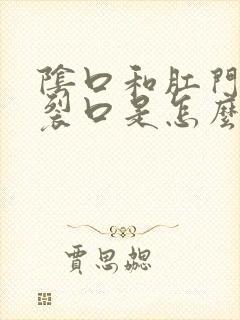 陰口和肛門
裂口是怎麼
賈思勰